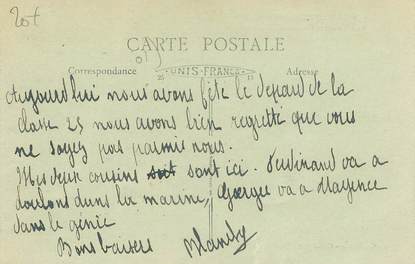 20f
CARTE POSTALE
Correspondance
UNIS-FRANCE
Adresse
Aujourd'hui nous avons fété le depard de la
classe 25 nous avons bien regretté que vous
ne soyez pas parmie nous.
Mes deux cousins soit sont ici. Ferdinand va a
doulons dans la marine, Georgie va a Mayence
dans le génie
Bons baisers